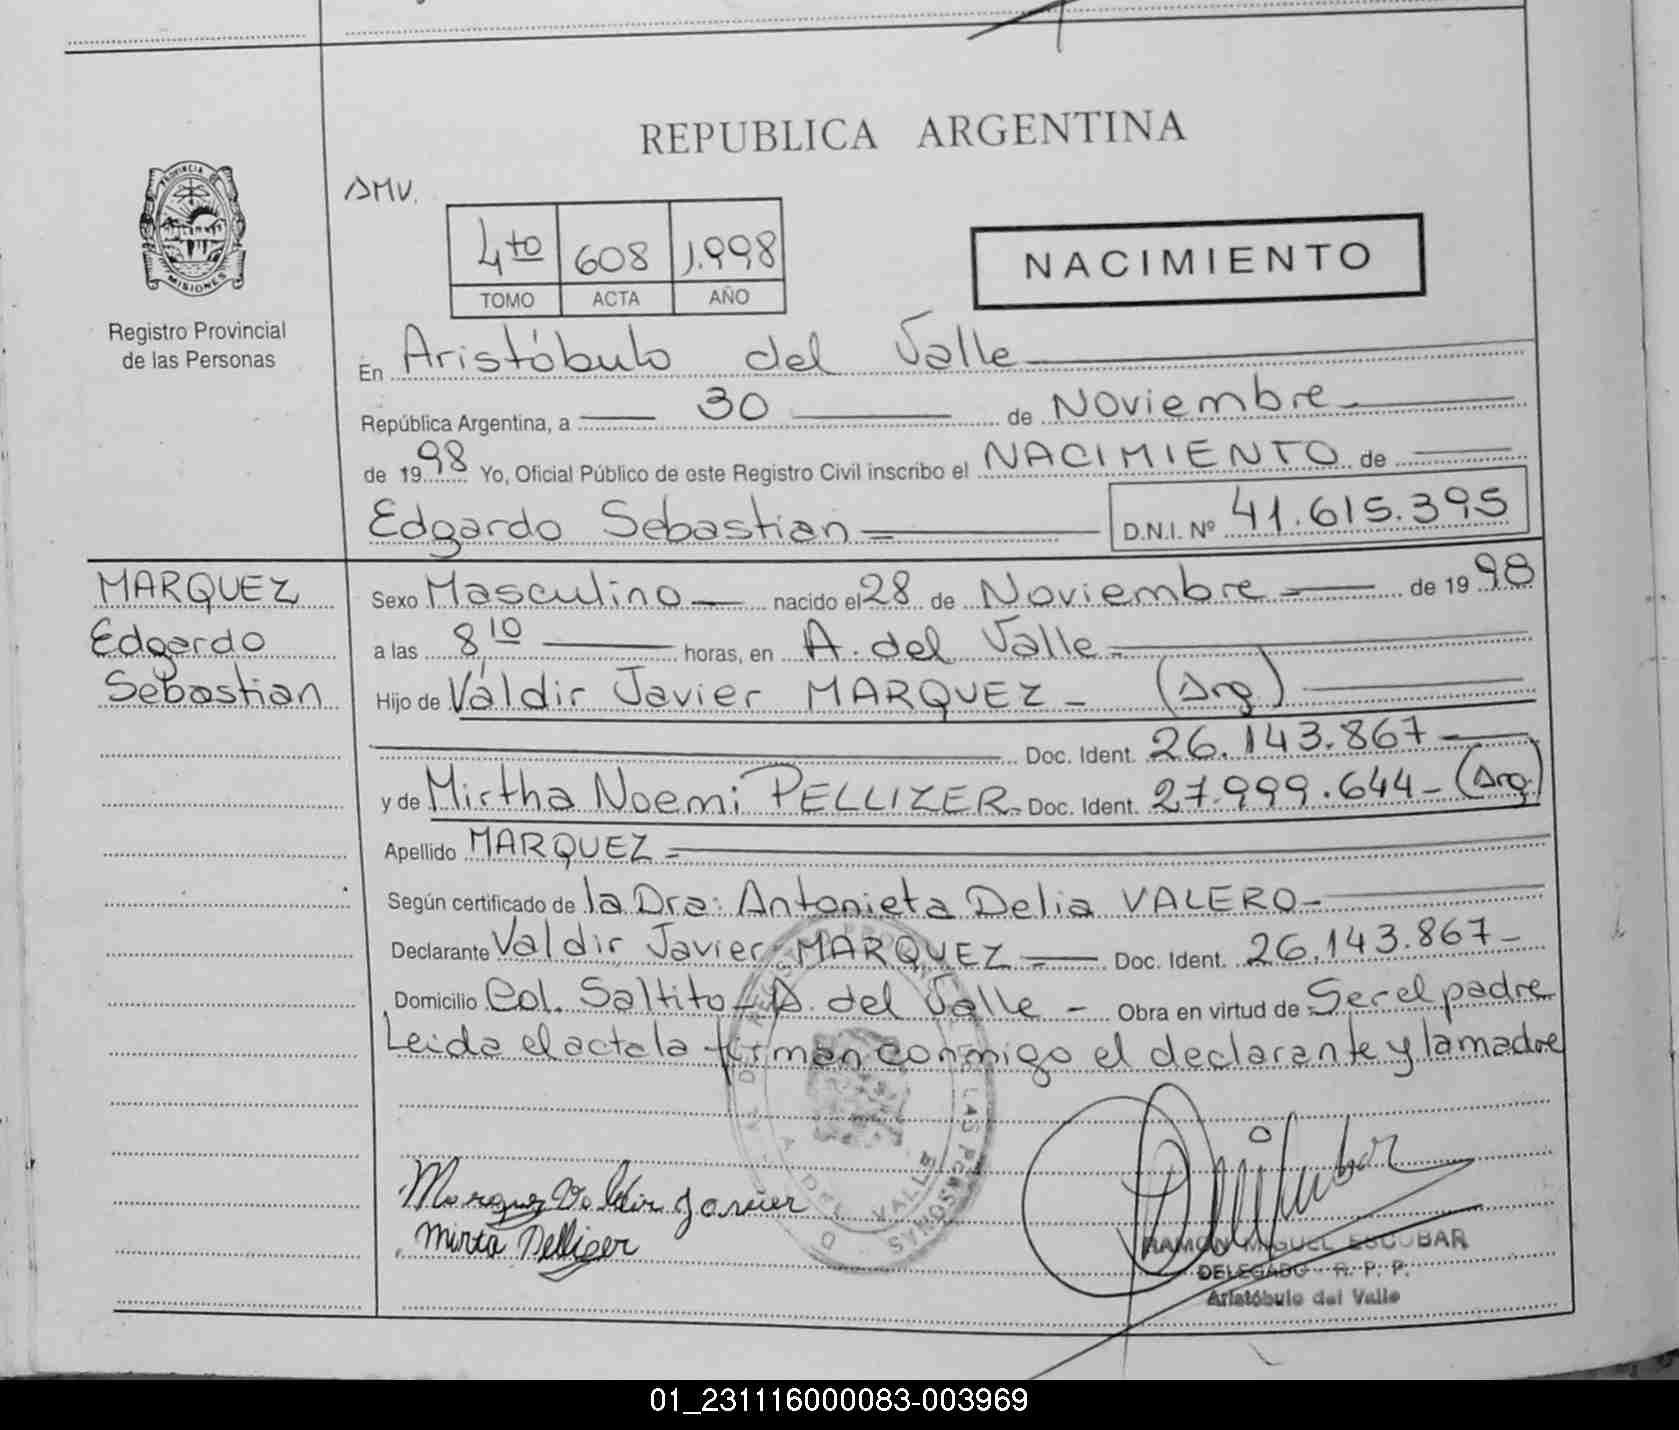 REPUBLICA ARGENTINA
PROVINCIA DE
MISIONES
Registro Provincial
de las Personas
AMV.
4to 608 1.998
TOMO ACTA AÑO
NACIMIENTO
En Aristóbulo del Valle
República Argentina, a 30 de Noviembre
de 1998 Yo, Oficial Público de este Registro Civil inscribo el NACIMIENTO de
Edgardo Sebastian D.N.I. Nº 41.615.395
MARQUEZ
Edgardo
Sebastian
Sexo Masculino nacido el 28 de Noviembre de 1998
a las 8 10 horas, en A. del Valle
Hijo de Váldir Javier MARQUEZ - (Arg)
Doc. Ident. 26.143.867
y de Mirtha Noemi PELLIZER - Doc. Ident. 27.999.644 - (Arg)
Apellido MARQUEZ
Según certificado de la Dra: Antonieta Delia VALERO -
Declarante Valdir Javier MARQUEZ Doc. Ident. 26.143.867 -
Domicilio Col. Saltito - A. del Valle - Obra en virtud de Ser el padre
Leida el acta la firman conmigo el declarante y la madre
Marquez Valdir Javier
Mirta Pellizer
RAMON MIGUEL ESCOBAR
DELEGADO - R. P. P.
Aristóbulo del Valle
01_231116000083-003969